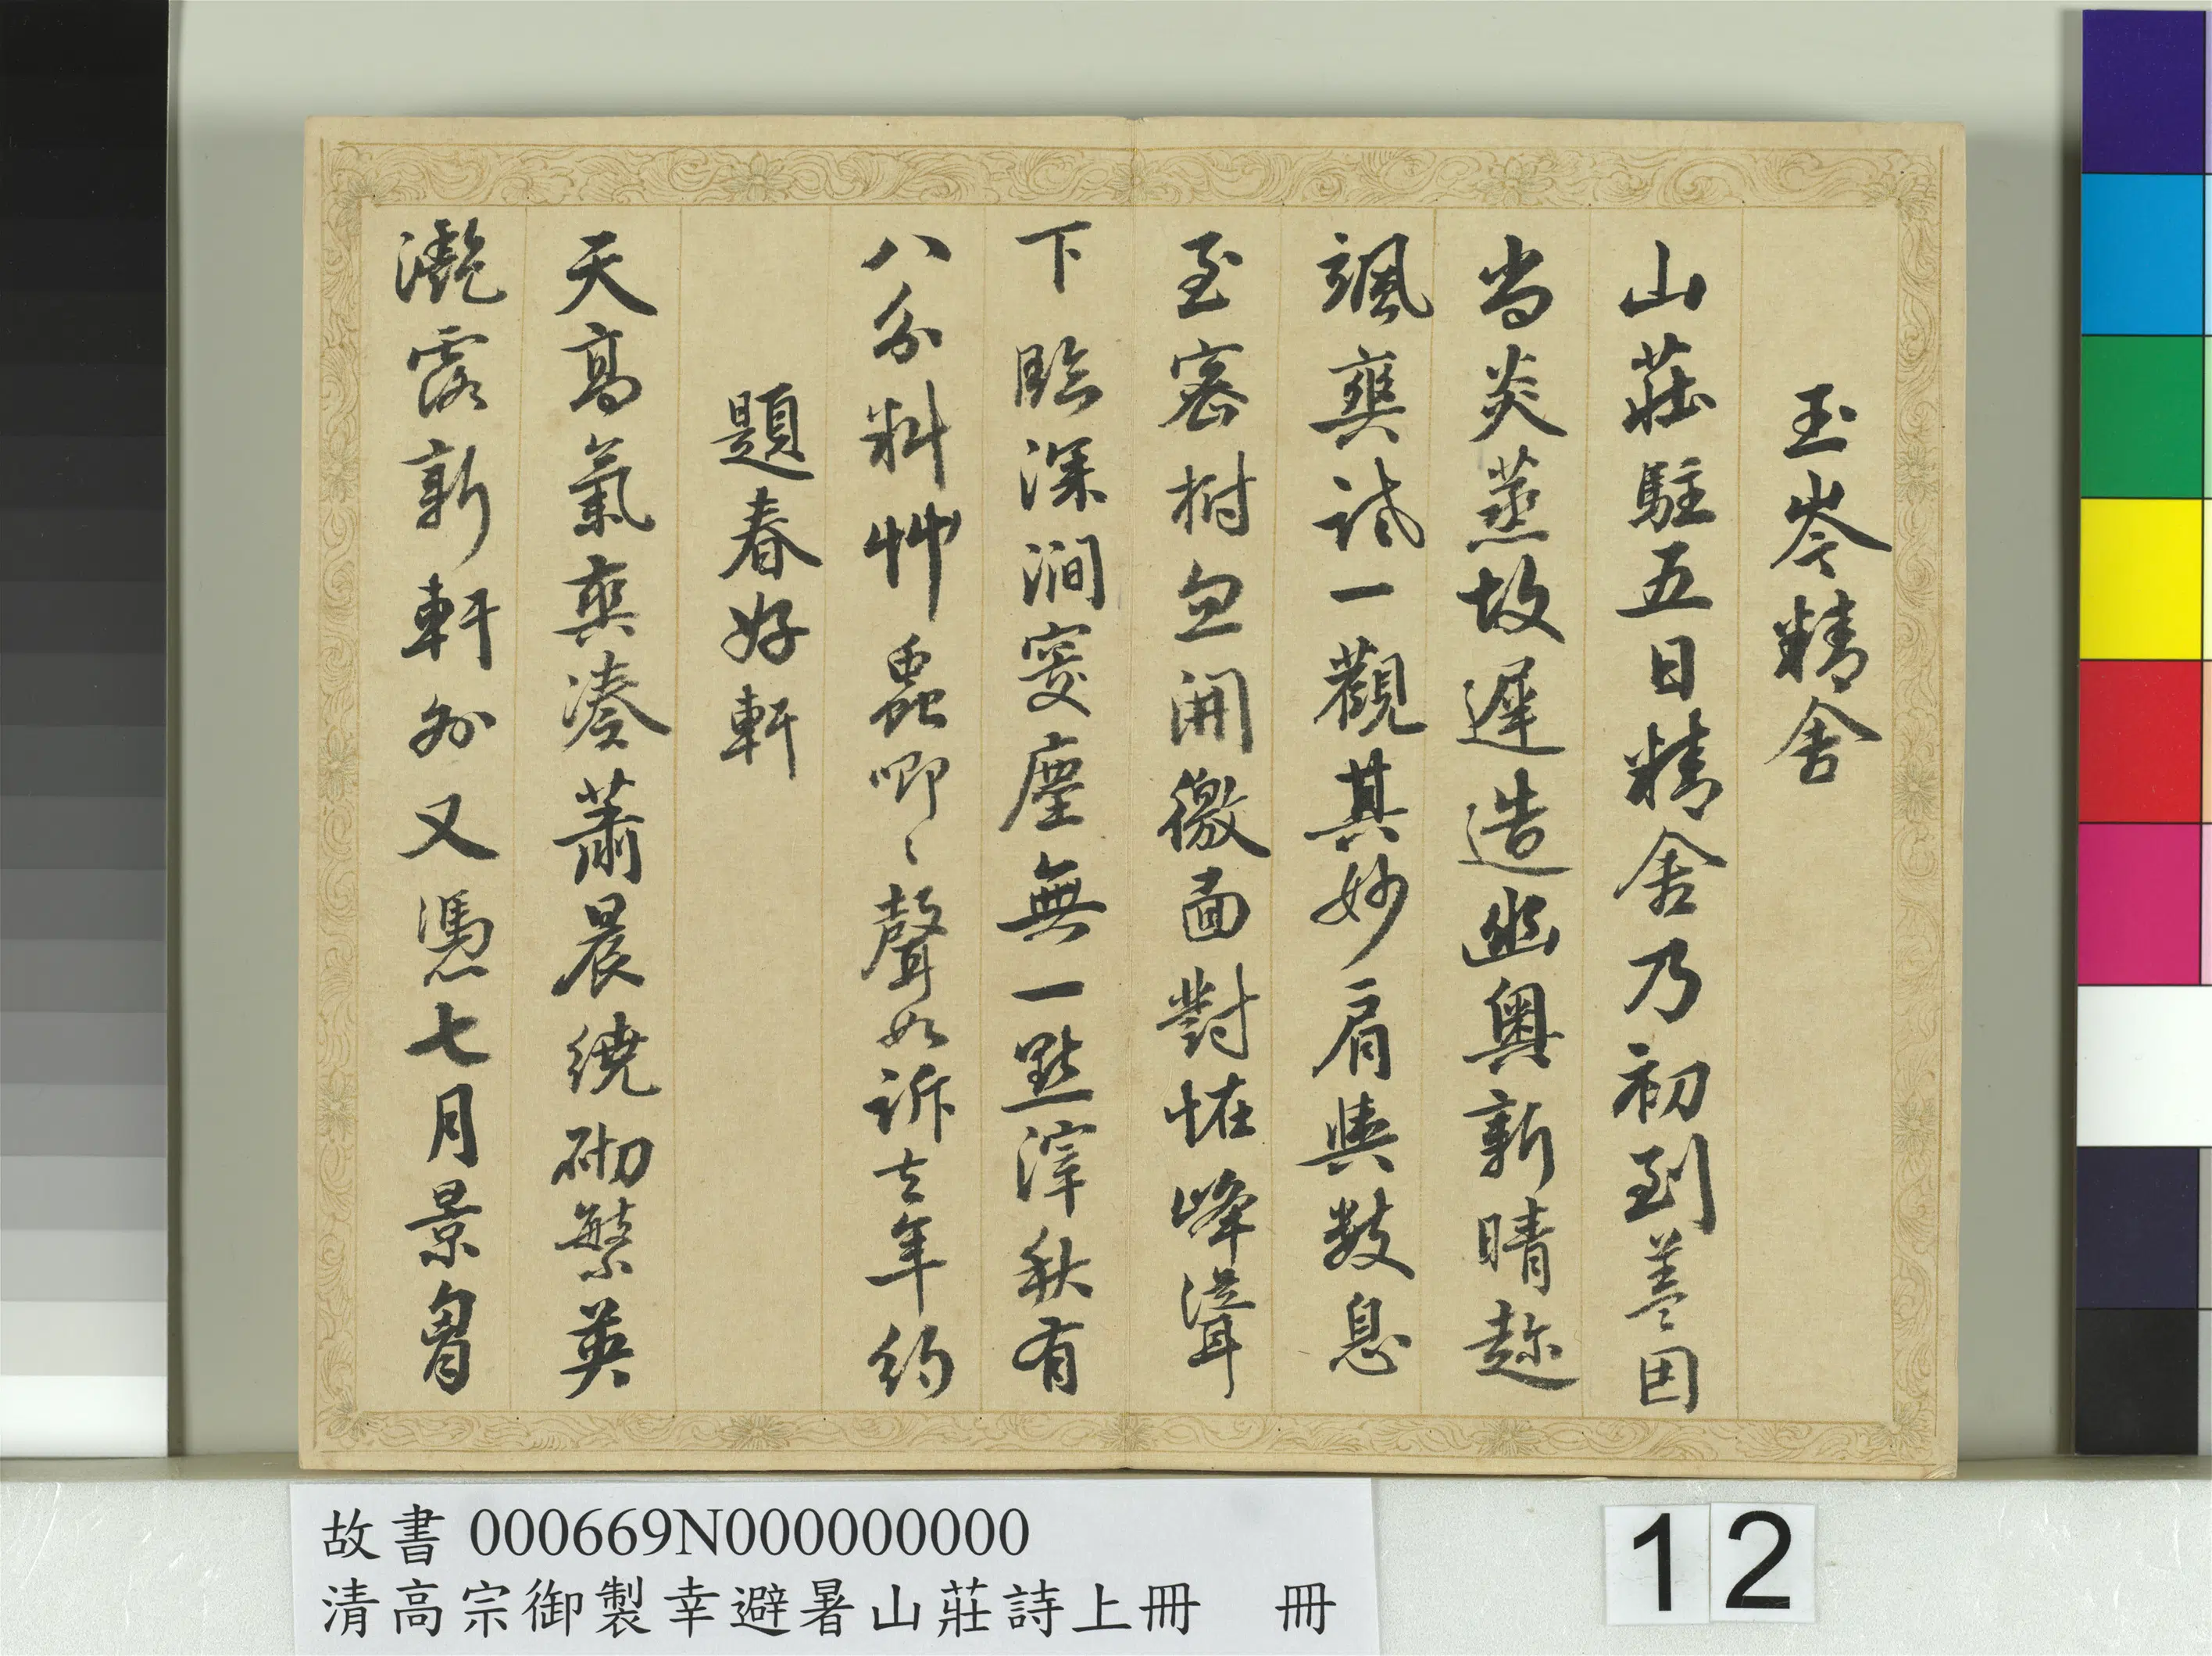 玉岑精舍
山莊駐五日精舍乃初到蓋因
當炎蒸故遲造幽奧新晴趂
颯爽試一觀其妙肩輿數息
至密樹忽開徼面對恠峰聳
下臨深澗窔塵無一點滓秋有
八分料艸蟲唧〻聲如訴去年約
題春好軒
天高氣爽湊蕭晨繞砌繁英
瀼露新軒外又憑七月景胷
故書 000669N000000000
清高宗御製幸避暑山莊詩上冊 冊
12